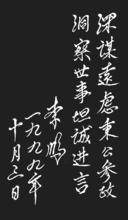 深谋远虑秉公参政
洞察世事坦诚进言
李鹏
一九九九年
十月二日